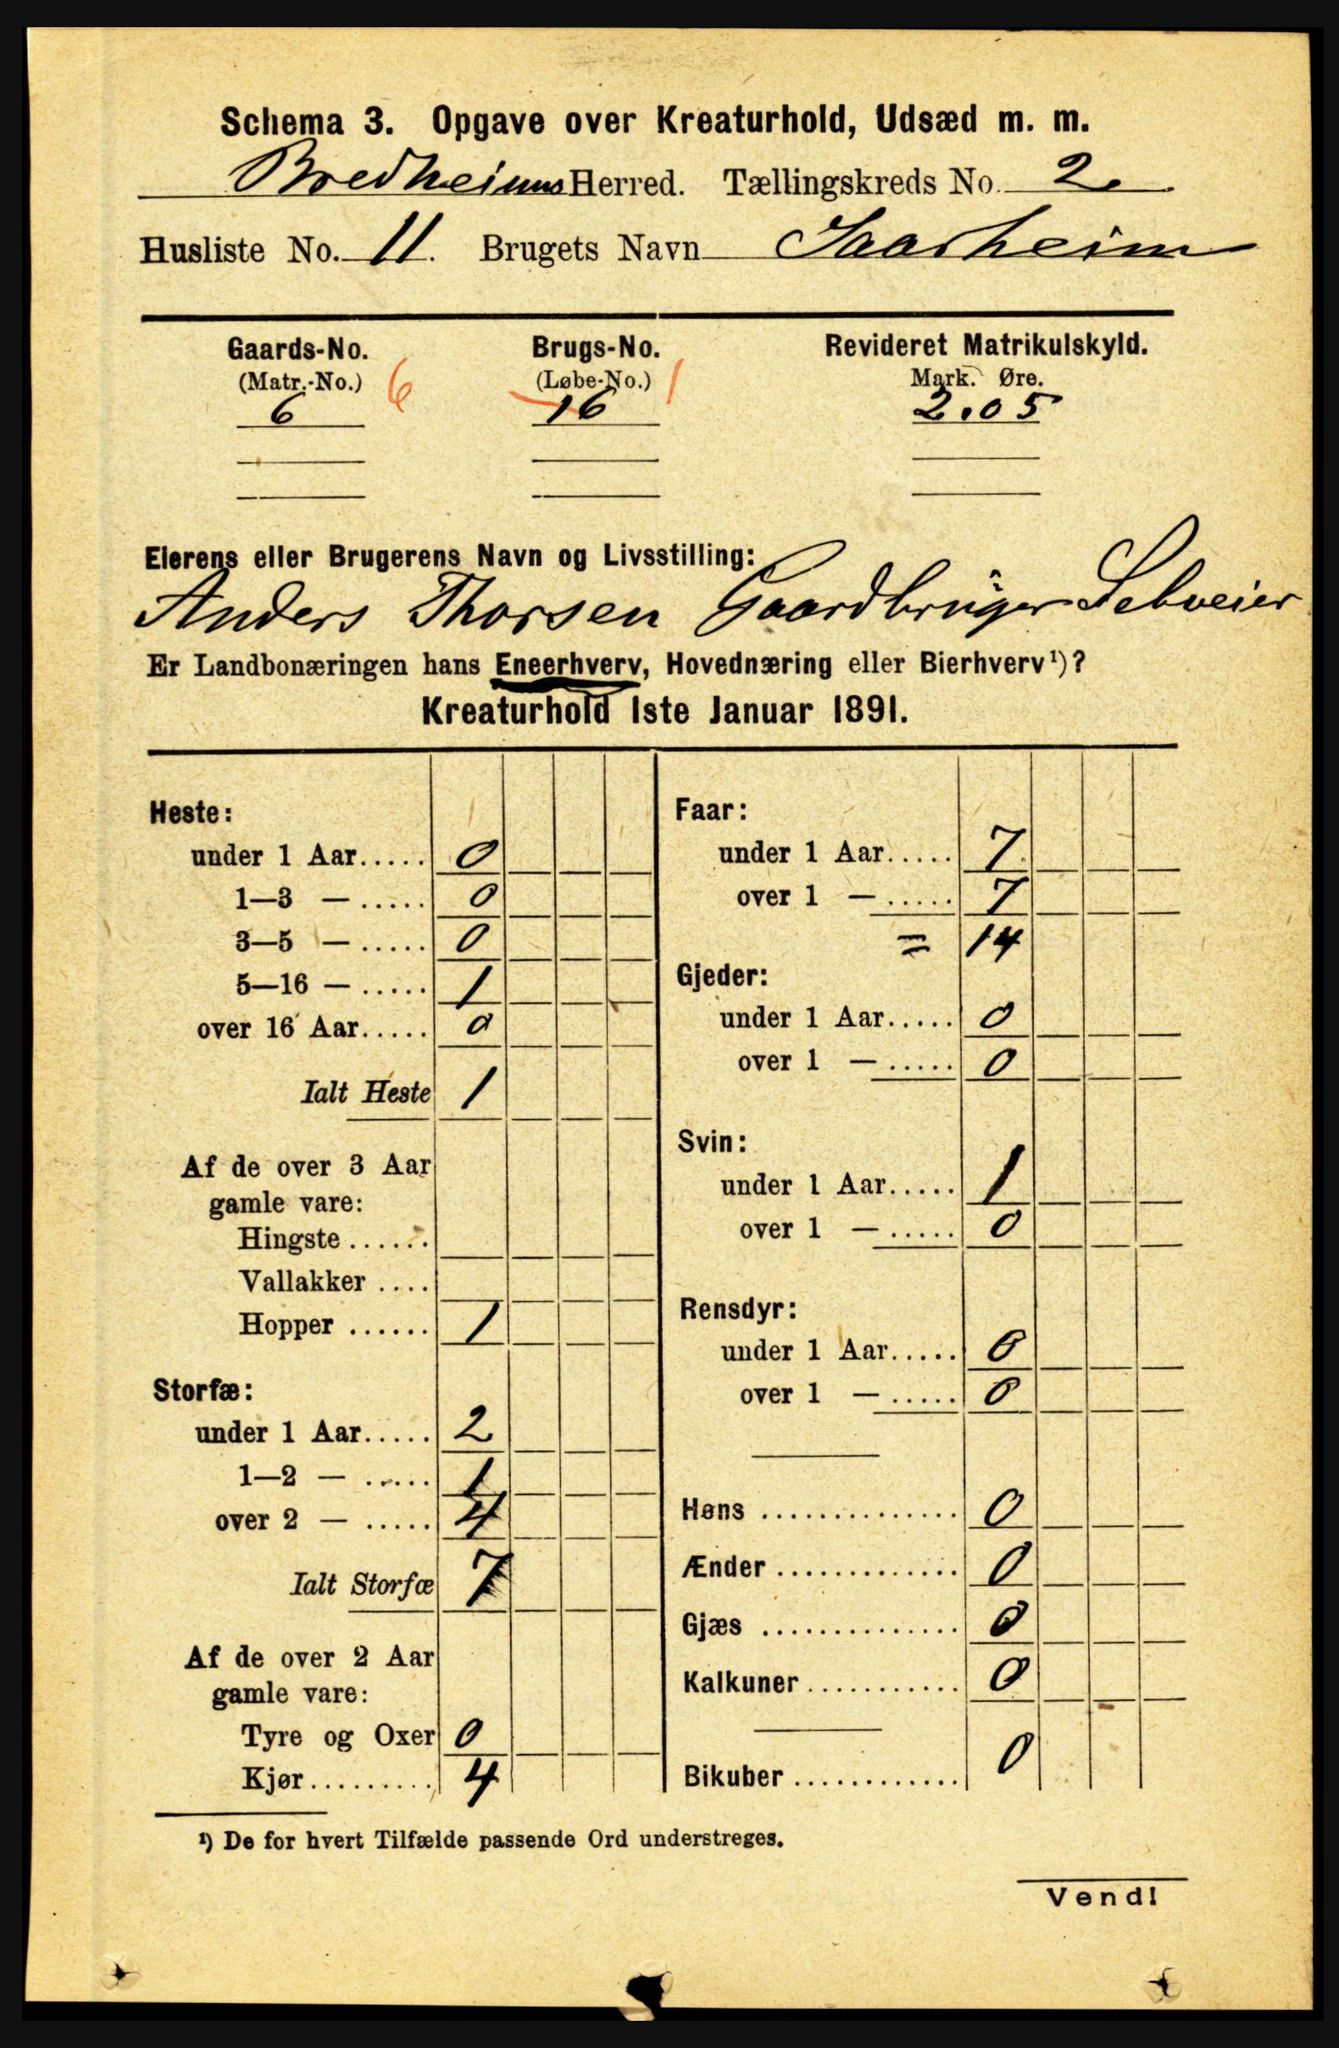 Schema 3. Opgave over Kreaturhold, Udsæd m. m.
Bredheims Herred. Tællingskreds No. 2.
Husliste No. 11. Brugets Navn Saarheim
Gaards-No. Brugs-No. Revideret Matrikulskyld.
(Matr.-No.) 6 (Løbe-No.) 1 Mark. Øre.
6 16 2.05
Eierens eller Brugerens Navn og Livsstilling:
Anders Thorsen Gaardbruger Selveier
Er Landbonæringen hans Eneerhverv, Hovednæring eller Bierhverv¹)?
Kreaturhold 1ste Januar 1891.
Heste:
under 1 Aar..... 0
1—3 — ..... 0
3—5 — ..... 0
5—16 — ..... 1
over 16 Aar..... 0
Ialt Heste 1
Af de over 3 Aar
gamle vare:
Hingste ......
Vallakker ....
Hopper ...... 1
Storfæ:
under 1 Aar..... 2
1—2 — ..... 1
over 2 — ..... 4
Ialt Storfæ 7
Af de over 2 Aar
gamle vare:
Tyre og Oxer 0
Kjør......... 4
Faar:
under 1 Aar..... 7
over 1 — ..... 7
= 14
Gjeder:
under 1 Aar..... 0
over 1 — ..... 0
Svin:
under 1 Aar..... 1
over 1 — ..... 0
Rensdyr:
under 1 Aar..... 0
over 1 — ..... 0
Høns .............. 0
Ænder ............. 0
Gjæs .............. 0
Kalkuner ........... 0
Bikuber ............ 0
¹) De for hvert Tilfælde passende Ord understreges.
Vend!